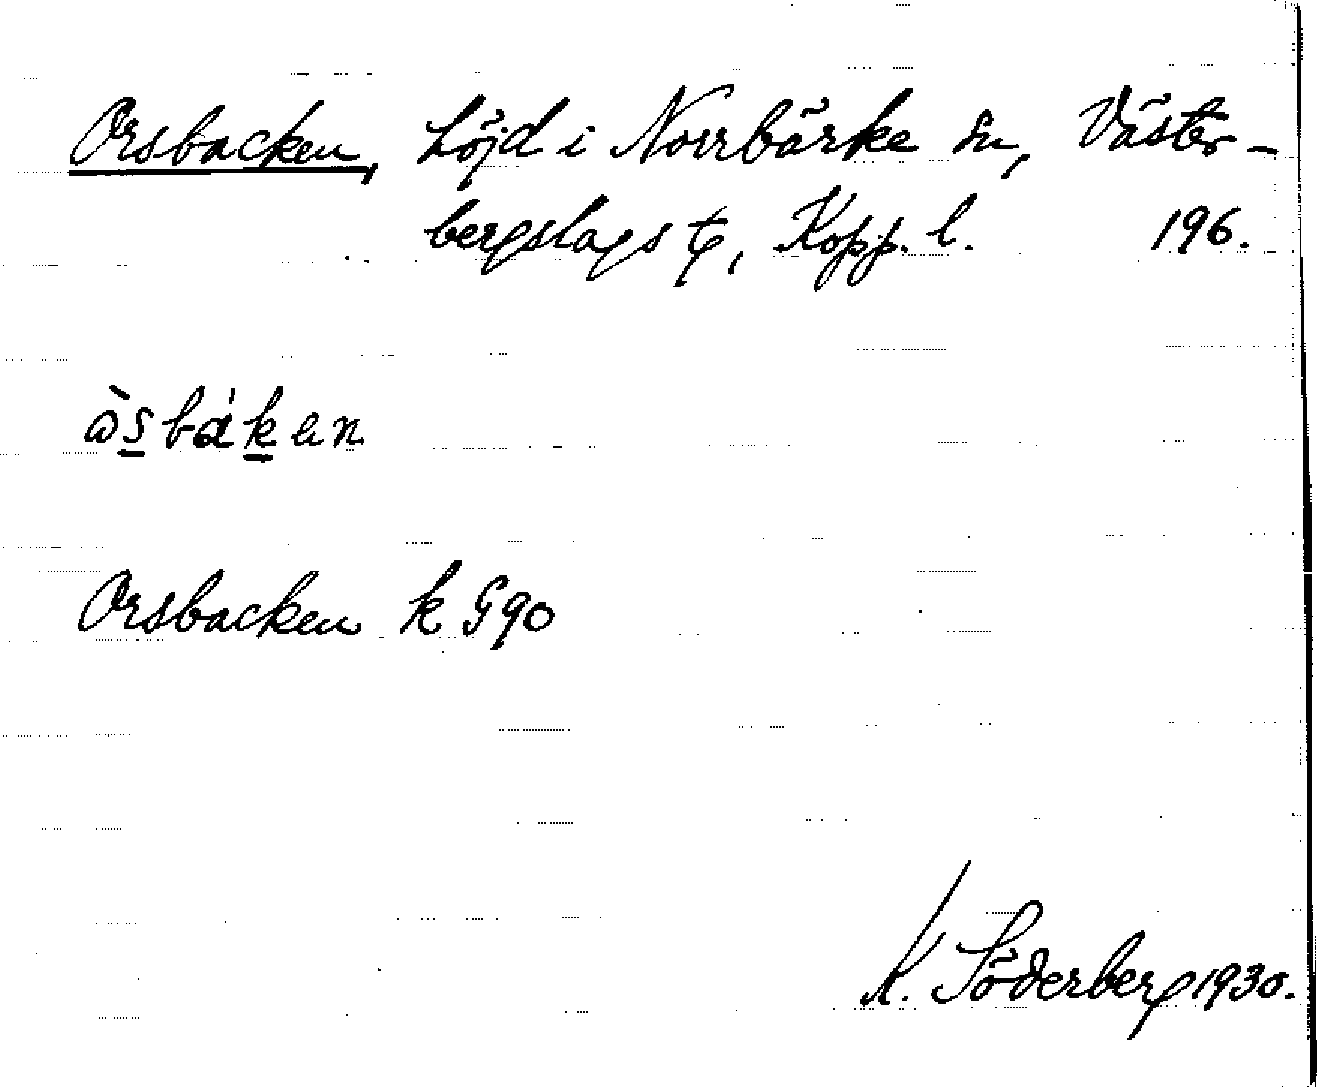 Orsbacken, höjd i Norrbärke sn, Väster-
bergslags tg, Kopp. l. 196.
òsbákan
Orsbacken k G90
K. Söderberg 1930.